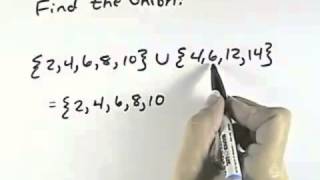 Find the Union.
{2,4,6,8,10} ∪ {4,6,12,14}
= {2,4,6,8,10